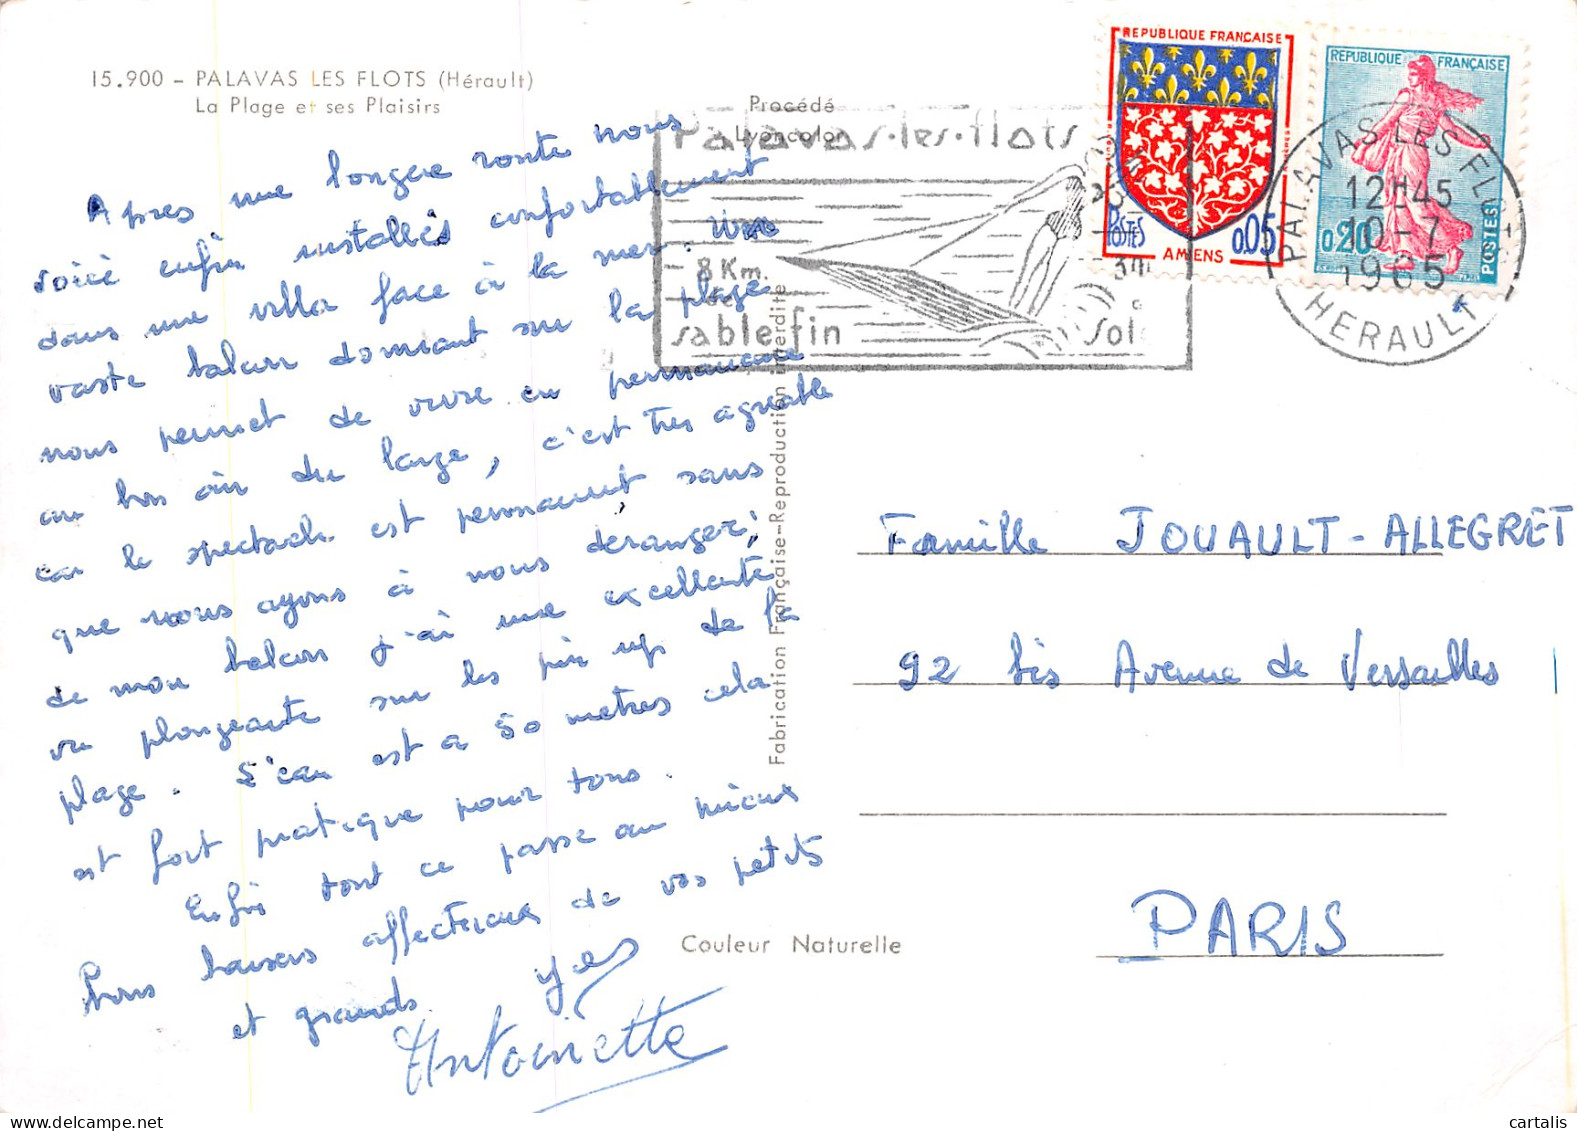 15.900 – PALAVAS LES FLOTS (Hérault)
La Plage et ses Plaisirs
Procédé
Lyoncolor
Apres une longue route nous
voici enfin installés confortablement
dans une villa face à la mer. Une
vaste balcon dominant sur la plage
nous permet de vivre en permanence
au bon air du large, c'est très agréable
car le spectacle est permanent sans
que nous ayons à nous déranger;
de mon balcon j'ai une excellente
vu plongeante sur les pin up de la
plage. L'eau est a 50 metres cela
est fort pratique pour tous.
Enfin tout ce passe au mieux
bons baisers affectueux de vos petits
et grands.
Antoinette
Fabrication Française-Reproduction interdite
Couleur Naturelle
Palavas-les-flots
8 Km.
de
sable fin
Sole
REPUBLIQUE FRANÇAISE
POSTES
0,05
AMIENS
REPUBLIQUE FRANÇAISE
0,20
POSTES
PALAVAS LES FLOTS
12H45
10-7
1965
HERAULT
Famille JOUAULT-ALLEGRET
92 bis Avenue de Versailles
PARIS